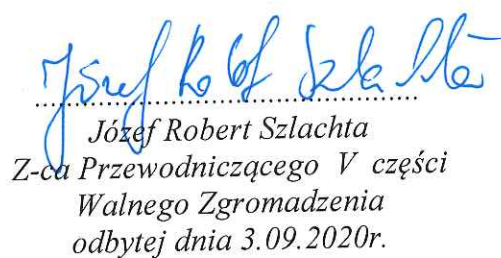 Józef Robert Szlachta
..........................................................
Józef Robert Szlachta
Z-ca Przewodniczącego V części
Walnego Zgromadzenia
odbytej dnia 3.09.2020r.